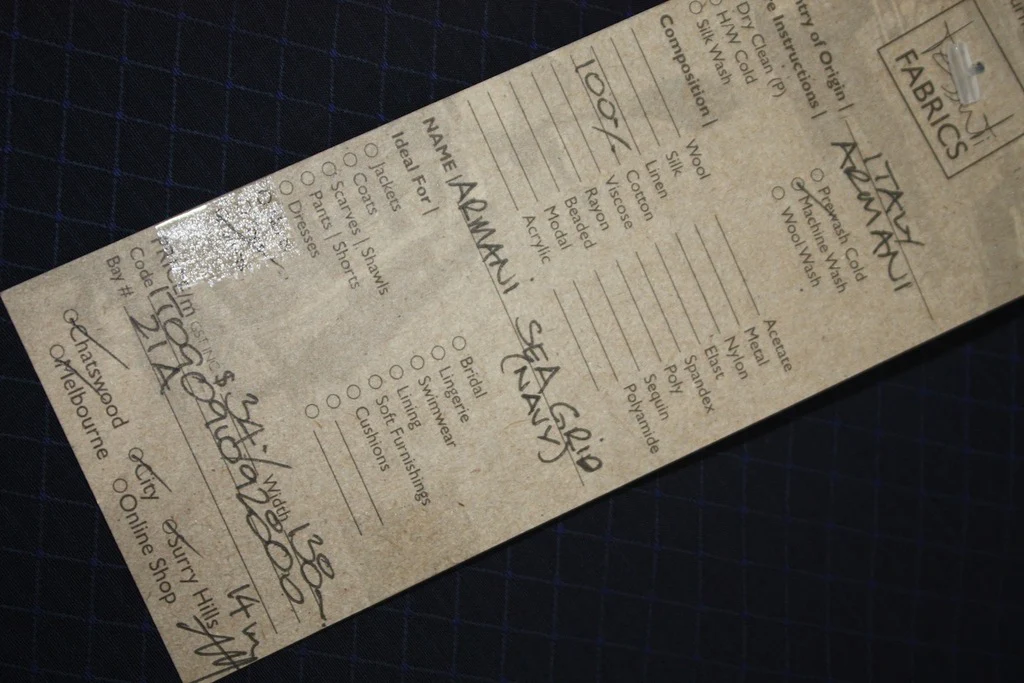 FABRICS
try of Origin | ITALY
ARMANI
e Instructions |
Dry Clean (P)
H/W Cold
Silk Wash
Prewash Cold
Machine Wash
Wool Wash
Composition |
Wool
Silk
100% Linen
Cotton
Viscose
Rayon
Beaded
Modal
Acrylic
Acetate
Metal
Nylon
Elast
Spandex
Poly
Sequin
Polyamide
NAME | ARMANI SEA GRID
(NAVY)
Ideal For |
Jackets
Coats
Scarves | Shawls
Pants | Shorts
Dresses
Bridal
Lingerie
Swimwear
Lining
Soft Furnishings
Cushions
/m GST INC $ Width 138
Code
Bay # 21A 14m
Chatswood City Surry Hills
Melbourne Online Shop